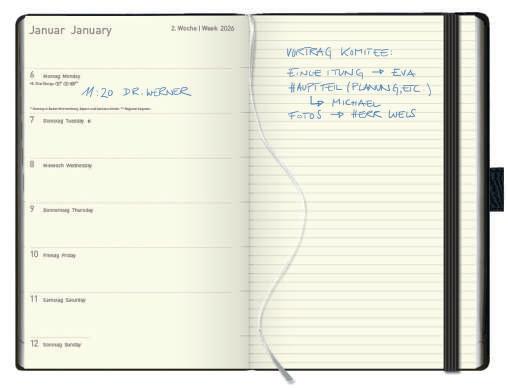 Januar January
2. Woche | Week 2026
6 Montag Monday
11:20 DR. WERNER
7 Dienstag Tuesday
8 Mittwoch Wednesday
9 Donnerstag Thursday
10 Freitag Friday
11 Samstag Saturday
12 Sonntag Sunday
VORTRAG KOMITEE:
EINLEITUNG → EVA
HAUPTTEIL (PLANUNG, ETC.)
↳ MICHAEL
FOTOS → HERR WEIS